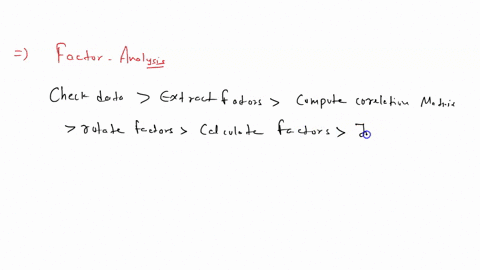 =) Factor - Analysis
Check data > Extract fators > Compute corelation Matrix
> rotate factors > Calculate factors >